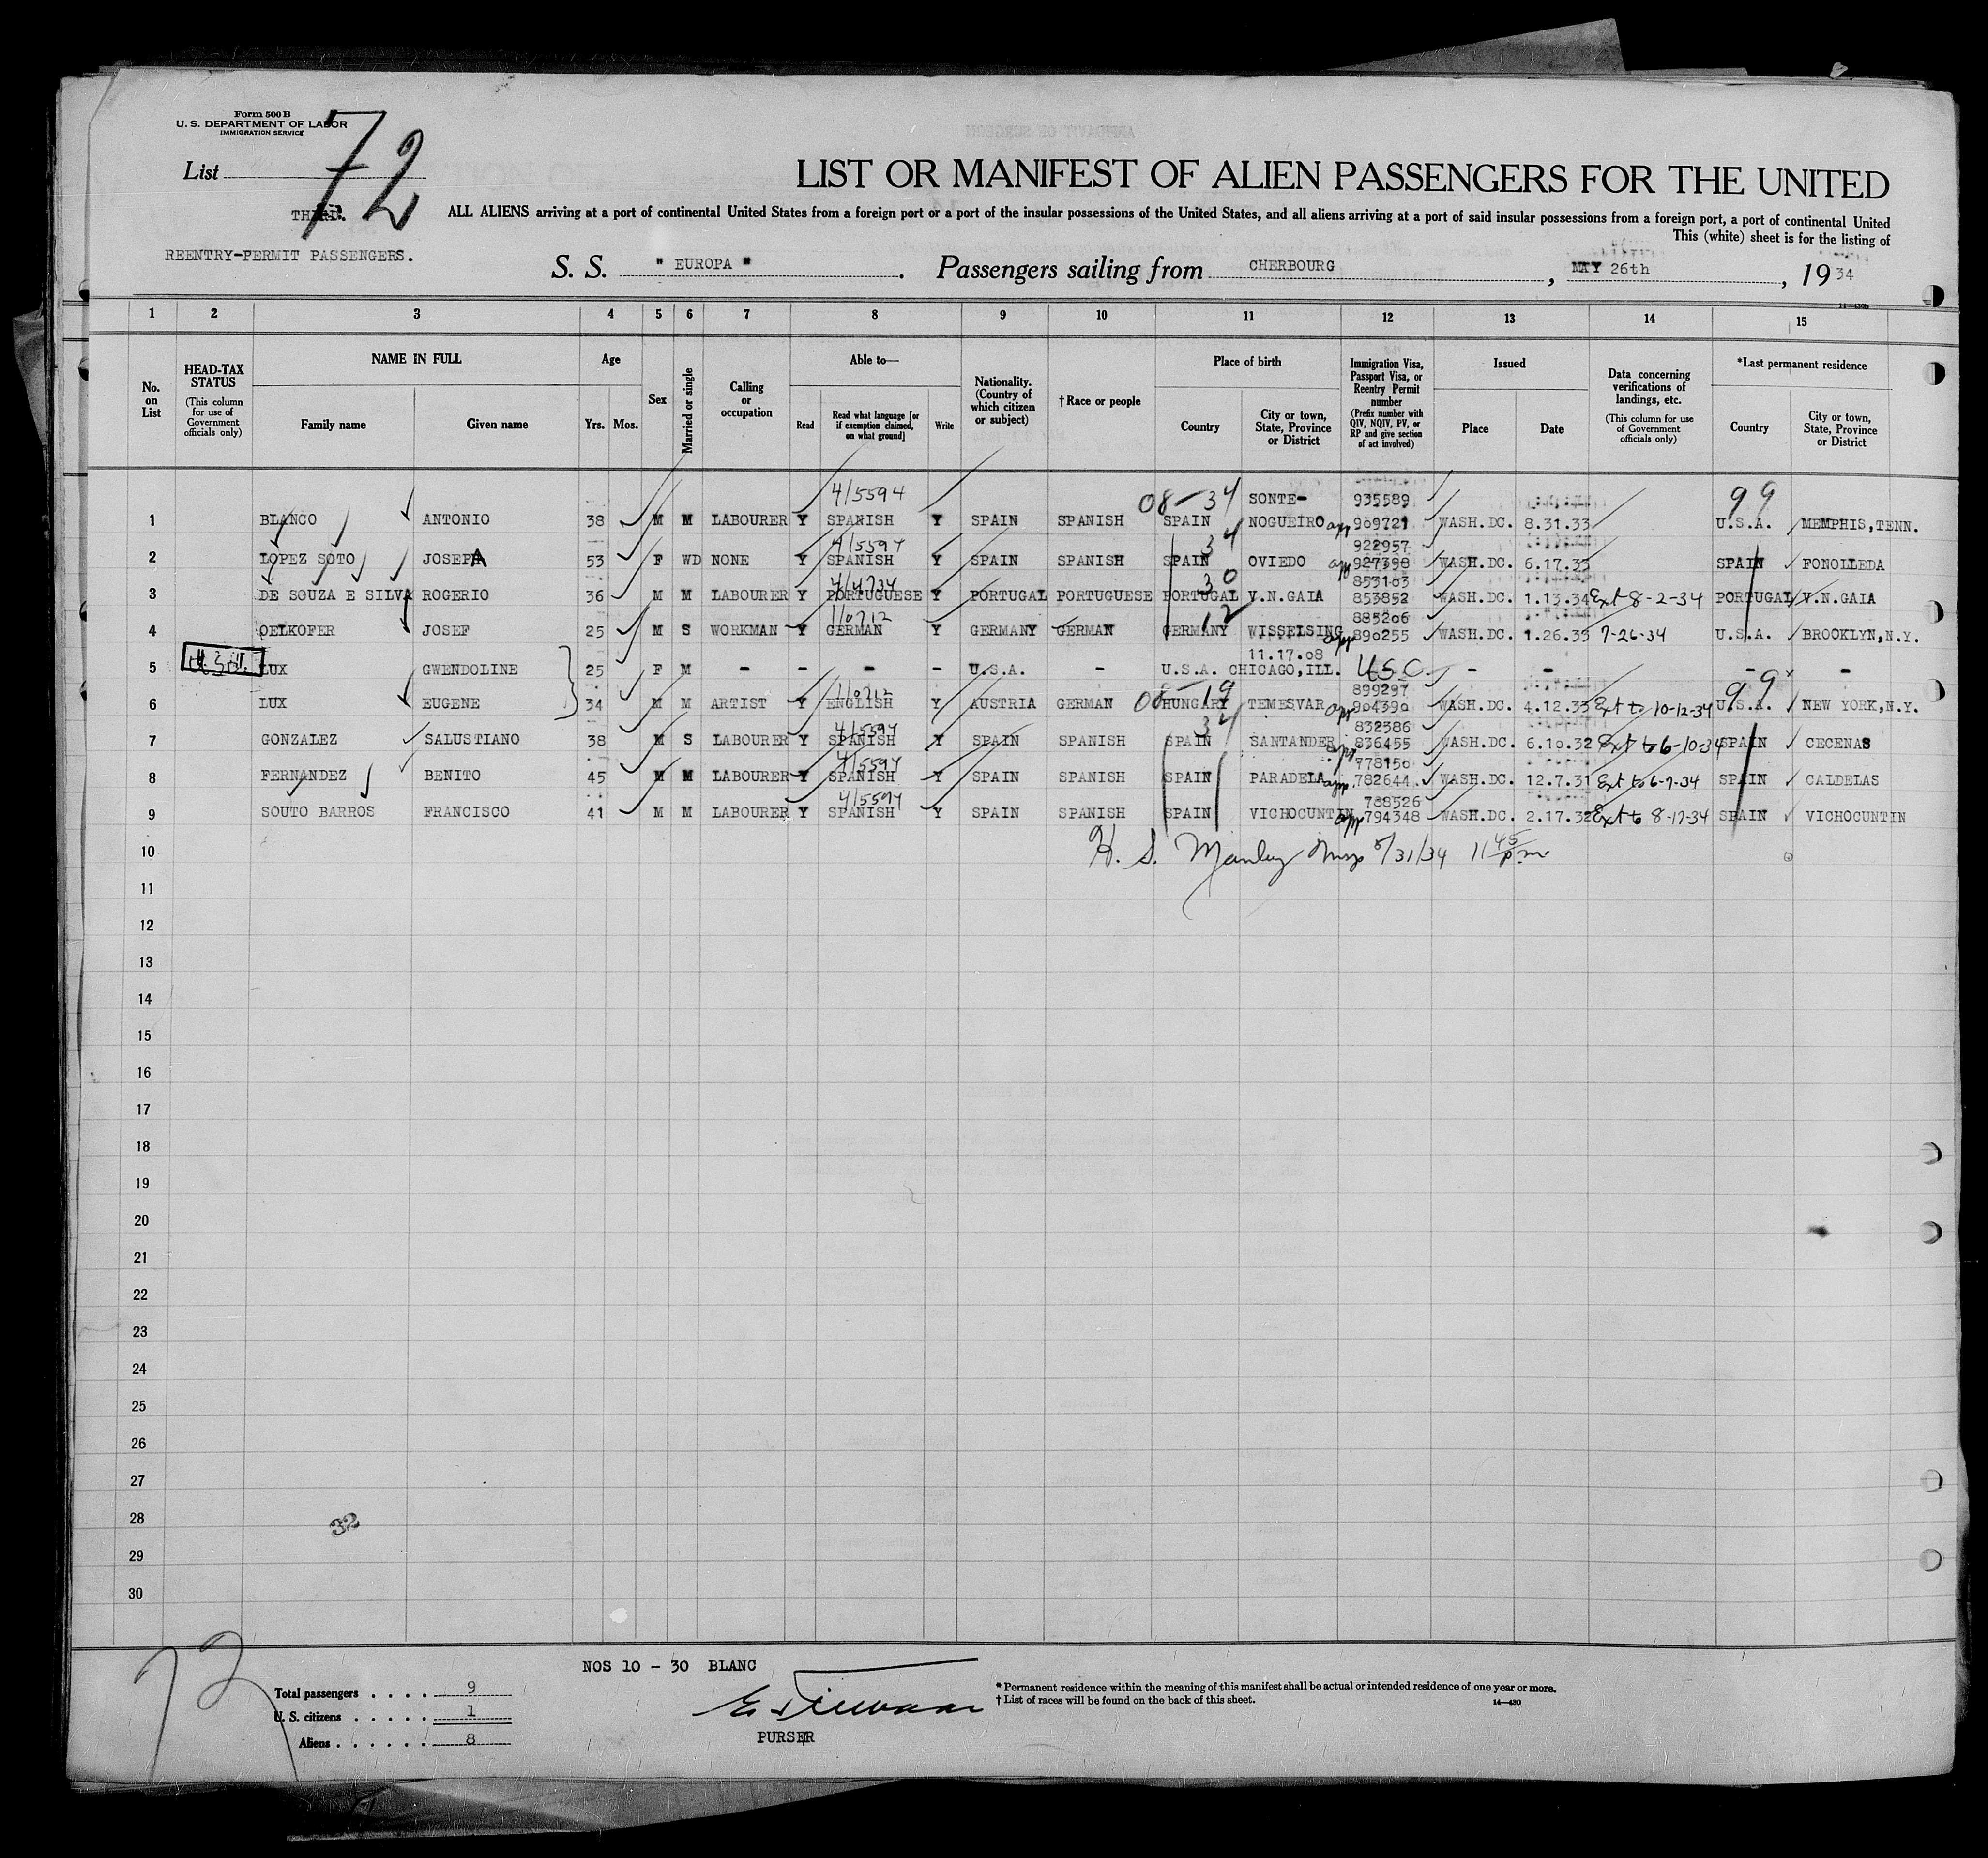 Form 500 B
U. S. DEPARTMENT OF LABOR
IMMIGRATION SERVICE
List 72
THIRD.
REENTRY-PERMIT PASSENGERS.
LIST OR MANIFEST OF ALIEN PASSENGERS FOR THE UNITED
ALL ALIENS arriving at a port of continental United States from a foreign port or a port of the insular possessions of the United States, and all aliens arriving at a port of said insular possessions from a foreign port, a port of continental United
This (white) sheet is for the listing of
S. S. " EUROPA " . Passengers sailing from CHERBOURG , MAY 26th , 19 34
14—430b
1 2 3 4 5 6 7 8 9 10 11 12 13 14 15
No. on List
HEAD-TAX STATUS (This column for use of Government officials only)
NAME IN FULL
Family name Given name
Age
Yrs. Mos.
Sex
Married or single
Calling or occupation
Able to—
Read
Read what language [or if exemption claimed, on what ground]
Write
Nationality. (Country of which citizen or subject)
† Race or people
Place of birth
Country
City or town, State, Province or District
Immigration Visa, Passport Visa, or Reentry Permit number (Prefix number with QIV, NQIV, PV, or RP and give section of act involved)
Issued
Place Date
Data concerning verifications of landings, etc. (This column for use of Government officials only)
*Last permanent residence
Country
City or town, State, Province or District
4/5594 08-34 SONTE- 935589 99
1 BLANCO ANTONIO 38 M M LABOURER Y SPANISH Y SPAIN SPANISH SPAIN NOGUEIRO app 909721 WASH.DC. 8.31.33 U.S.A. MEMPHIS,TENN.
4/5594 34 922957
2 LOPEZ SOTO JOSEPA 53 F WD NONE Y SPANISH Y SPAIN SPANISH SPAIN OVIEDO app 927398 WASH.DC. 6.17.33 SPAIN FONOLLEDA
4/4734 30 853103
3 DE SOUZA E SILVA ROGERIO 36 M M LABOURER Y PORTUGUESE Y PORTUGAL PORTUGUESE PORTUGAL V.N.GAIA 853852 WASH.DC. 1.13.34 Ext 8-2-34 PORTUGAL V.N.GAIA
1/0712 12 885206
4 OELKOFER JOSEF 25 M S WORKMAN Y GERMAN Y GERMANY GERMAN GERMANY WISSELSING app 890255 WASH.DC. 1.26.33 7-26-34 U.S.A. BROOKLYN,N.Y.
11.17.08
5 LUX GWENDOLINE 25 F M - - - - U.S.A. - U.S.A. CHICAGO,ILL. USC - - - -
1/0712 08-19 899297 99
6 LUX EUGENE 34 M M ARTIST Y ENGLISH Y AUSTRIA GERMAN HUNGARY TEMESVAR app 904390 WASH.DC. 4.12.33 Ext to 10-12-34 U.S.A. NEW YORK,N.Y.
4/5594 34 832586
7 GONZALEZ SALUSTIANO 38 M S LABOURER Y SPANISH Y SPAIN SPANISH SPAIN SANTANDER app 836455 WASH.DC. 6.10.32 Ext to 6-10-34 SPAIN CECENAS
4/5594 778150
8 FERNANDEZ BENITO 45 M M LABOURER Y SPANISH Y SPAIN SPANISH SPAIN PARADELA app. 782644 WASH.DC. 12.7.31 Ext to 6-7-34 SPAIN CALDELAS
4/5594 788526
9 SOUTO BARROS FRANCISCO 41 M M LABOURER Y SPANISH Y SPAIN SPANISH SPAIN VICHOCUNTIN app 794348 WASH.DC. 2.17.32 Ext to 8-17-34 SPAIN VICHOCUNTIN
10 H. S. Manley Insp 5/31/34 11 45 p.m
11
12
13
14
15
16
17
18
19
20
21
22
23
24
25
26
27
28 32
29
30
72
NOS 10 - 30 BLANC
Total passengers . . . . 9
U. S. citizens . . . . . 1
Aliens . . . . . . 8
PURSER
* Permanent residence within the meaning of this manifest shall be actual or intended residence of one year or more.
† List of races will be found on the back of this sheet.
14—430